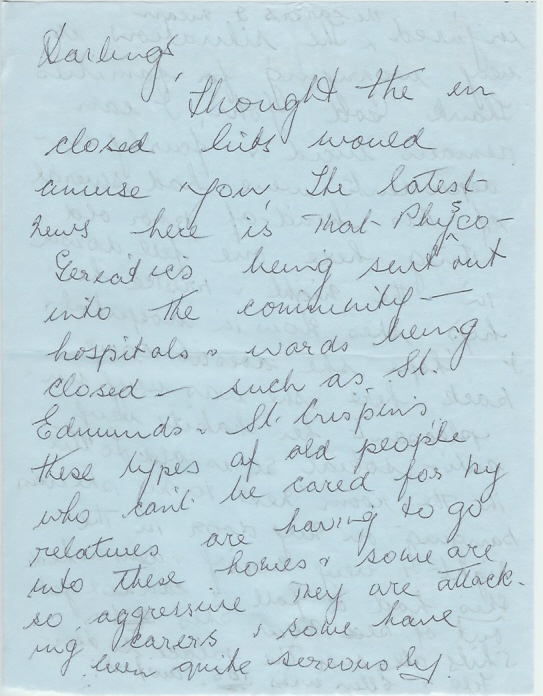 Darlings,
Thought the en
closed bits would
amuse you, The latest
news here is that Physco-
Gereatics being sent out
into the community —
hospitals & wards being
closed — such as St.
Edmunds & St. Crispin's
these types of old people
who can't be cared for by
relatives are having to go
into these homes & some are
so aggressive they are attack-
ing carers & some have
been quite sereously